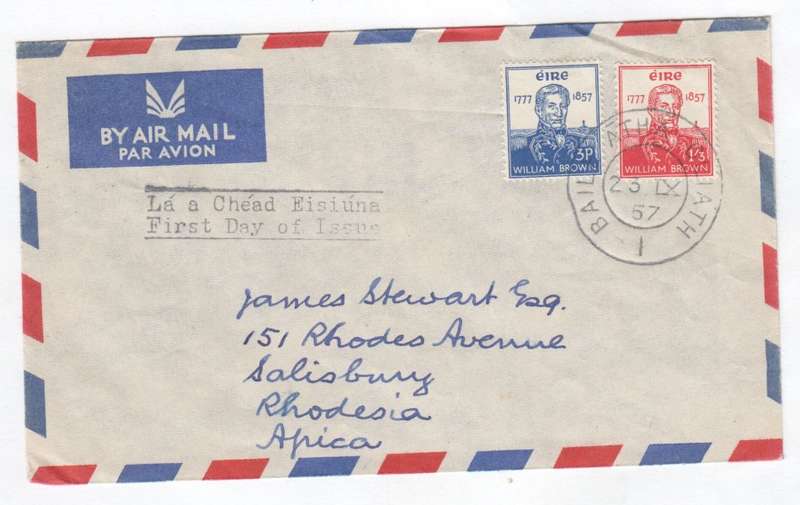 BY AIR MAIL
PAR AVION
éIRe
1777 1857
3P
WILLIAM BROWN
éIRe
1777 1857
1/3
WILLIAM BROWN
BAILE ÁTHA CLIATH
23 IX
57
1
Lá a Chéad Eisiúna
First Day of Issue
James Stewart Esq.
151 Rhodes Avenue
Salisbury
Rhodesia
Africa